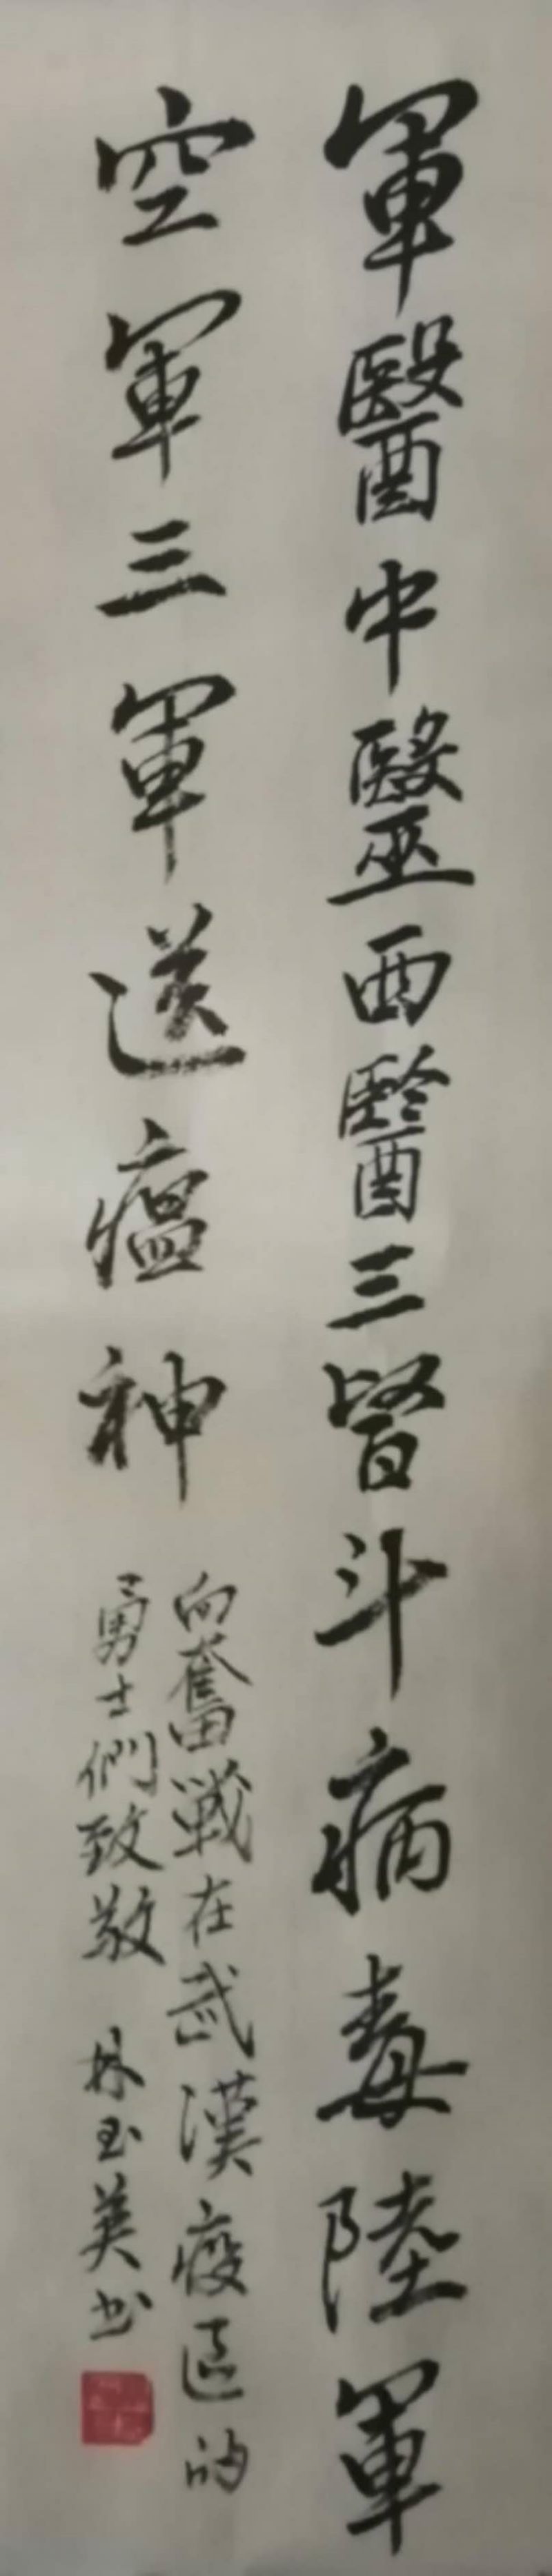 軍醫中毉西醫三醫斗病毒陸軍
空軍三軍送瘟神
向奮戰在武漢疫區的
勇士們致敬 林玉美书